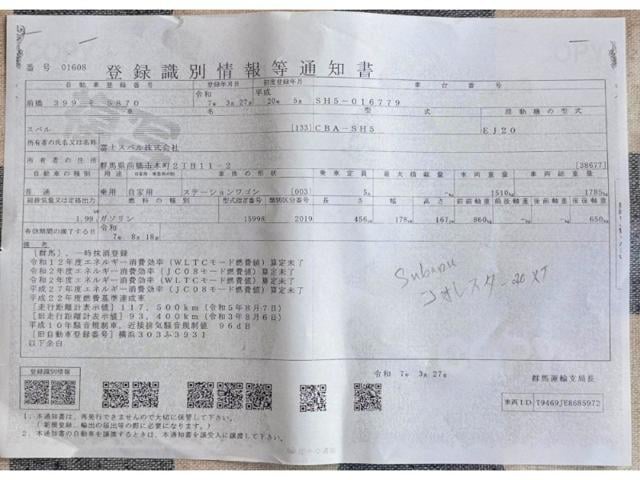 番号 01608
登録識別情報等通知書
自動車登録番号 登録年月日 初度登録年月 車台番号
令和 平成
前橋 399 そ 5870 7年 3月27日 20年 5月 SH5-016779
車名 型式 原動機の型式
スバル [133] CBA-SH5 EJ20
所有者の氏名又は名称 富士スバル株式会社
所有者の住所 [38677]
自動車の種別 用途 自家用・事業用の別 車体の形状 乗車定員 最大積載量 車両重量 車両総重量
普通 乗用 自家用 ステーションワゴン [003] 5人 -kg 1510kg 1785kg
総排気量又は定格出力 燃料の種類 型式指定番号 類別区分番号 長さ 幅 高さ 前前軸重 前後軸重 後前軸重 後後軸重
1.99 ガソリン 15998 2019 456cm 178cm 167cm 860kg -kg -kg 650kg
有効期間の満了する日 令和
7年 8月18日
備考
[群馬], 一時抹消登録
令和12年度エネルギー消費効率(WLTCモード燃費値)算定未了
令和2年度エネルギー消費効率(JC08モード燃費値)算定未了
令和2年度エネルギー消費効率(WLTCモード燃費値)算定未了
平成27年度エネルギー消費効率(JC08モード燃費値)算定未了
平成22年度燃費基準達成車
[走行距離計表示値] 117,500km(令和5年8月7日)
[旧走行距離計表示値] 93,400km(令和3年8月6日)
平成10年騒音規制車、近接排気騒音規制値 96dB
[旧自動車登録番号] 横浜303ふ3931
以下余白
Subaru
フォレスター 20 XT
登録識別情報
令和 7年 3月27日
群馬運輸支局長
車両ID T9469JE8685972
1. 本通知書は、再発行できませんので大切に保管して下さい。
(新規登録、輸出の届出等の際に必要になります。)
2. 本通知書の自動車を譲渡するときは、本通知書を譲受人に譲渡して下さい。